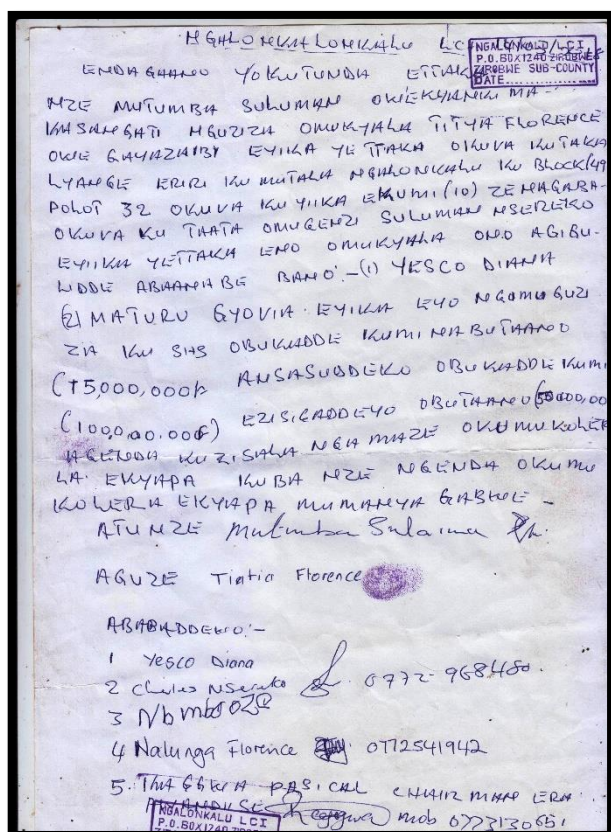 NGALONKALONKALU LCI
NGALONKALU LCI
P.O.BOX1240 ZIROBWE
ZIROBWE SUB-COUNTY
DATE
ENDAGAANO YOKUTUNDA ETTAKA
NZE MUTUMBA SULUMAN OWEKYANIKIMA-
KASANGATI NGUZIZA OMUKYALA TITYA FLORENCE
OWE GAYAZA EYIKA YE TTAKA OKUVA KUTAKA
LYANGE ERIRI KU MUTALA NGALONKALU KU BLOCK/49
POLOT 32 OKUVA KU YIIKA EKUMI (10) ZENAGABA-
OKUVA KU TAATA OMUGENZI SULUMAN NSEREKO
EYIIKA YETTAKA ENO OMUKYALA ONO AGIBU-
LIDDE ABAANABE BANO:-(1) YESCO DIANA
(2) MATURU GYOVIA EYIKA EYO NGOMUGUZI
ZA KU SHS OBUKADDE KUMI NABUTAANO
(15,000,000/= ANSASUDDEKO OBUKADDE KUMI
(100,0,00.000/=) EZISIGADDEYO OBUTAANO (5000,000
AGENDA KUZISALA NGA MAZE OKUMUKOLER
LA EKYAPA KUBA NZE NGENDA OKUMU
KOLERA EKYAPA MUMANYA GABWE -
ATUNZE Mutumba Sulaima
AGUZE Tiatia Florence
ABABADDEWO:-
1 Yesco Diana
2 Charles Nsereko 0772-968480.
3
4 Nalunga Florence 0772541942
5. PASICAL CHAIRMAN ERA
mob 0773130651
NGALONKALU LCI
P.O.BOX1240 ZIROBWE